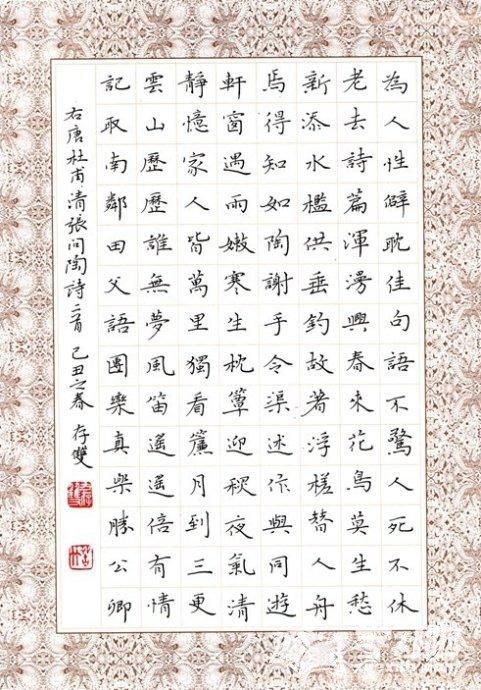 為人性僻耽佳句語不驚人死不休
老去詩篇渾漫興春來花鳥莫生愁
新添水檻供垂釣故著浮槎替人舟
焉得知如陶謝手令渠述作與同遊
軒窗遇雨嫩寒生枕簟迎秋夜氣清
靜憶家人皆萬里獨看簾月到三更
雲山歷歷誰無夢風笛遙遙倍有情
記取南鄰田父語團欒真樂勝公卿
右唐杜甫清張問陶詩二首 己丑之春 存雙